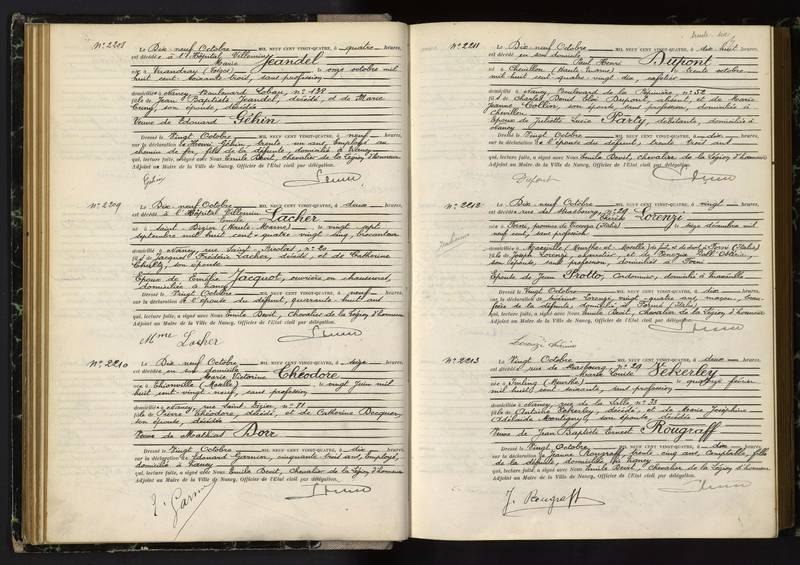 N° 2208
Le Dix neuf Octobre MIL NEUF CENT VINGT-QUATRE, à quatre heures,
est décédée à l'Hôpital Villemin
Marie Jeandel
née à (Vosges), le onze octobre mil
huit cent soixante trois, sans profession
domiciliée à Nancy, Boulevard Lobau, n° 139
fille de Jean Baptiste Jeandel, décédé, et de Marie
son épouse, décédée
Veuve de Edouard Géhin
Dressé le Vingt Octobre MIL NEUF CENT VINGT-QUATRE, à neuf heures,
sur la déclaration de Henri Géhin, trente un ans, Employé au
chemin de fer, fils de la défunte, domicilié à Nancy
qui, lecture faite, a signé avec Nous Emile Bevit, Chevalier de la Légion d'honneur
Adjoint au Maire de la Ville de Nancy, Officier de l'Etat civil par délégation.
Géhin
N° 2209
Le Dix neuf Octobre MIL NEUF CENT VINGT-QUATRE, à deux heures,
est décédé à l'Hôpital Villemin
Emile Lacher
né à Saint Dizier (Haute Marne), le vingt sept
septembre mil huit cent quatre vingt cinq, brocanteur
domicilié à Nancy, rue Saint Nicolas, n° 20
fils de Jacques Frédéric Lacher, décédé, et de Catherine
son épouse
Epoux de Emilie Jacquot, ouvrière en chaussures,
domiciliée à Nancy
Dressé le Vingt Octobre MIL NEUF CENT VINGT-QUATRE, à neuf heures,
sur la déclaration de l'épouse du défunt, quarante huit ans
qui, lecture faite, a signé avec Nous Emile Bevit, Chevalier de la Légion d'honneur
Adjoint au Maire de la Ville de Nancy, Officier de l'Etat civil par délégation.
Mme Lacher
N° 2210
Le Dix neuf Octobre MIL NEUF CENT VINGT-QUATRE, à seize heures,
est décédée en son domicile
Marie Victorine Théodore
née à Thionville (Moselle), le vingt Juin mil
huit cent vingt neuf, sans profession
domiciliée à Nancy, rue Saint Dizier n° 71
fille de Pierre Théodore, décédé, et de Catherine Becquer,
son épouse, décédée
Veuve de Mathias Dorr
Dressé le Vingt Octobre MIL NEUF CENT VINGT-QUATRE, à dix heures,
sur la déclaration de Edouard Garnier, cinquante trois ans, Employé,
domicilié à Nancy
qui, lecture faite, a signé avec Nous Emile Bevit, Chevalier de la Légion d'honneur
Adjoint au Maire de la Ville de Nancy, Officier de l'Etat civil par délégation.
N° 2211
Le Dix neuf Octobre MIL NEUF CENT VINGT-QUATRE, à dix huit heures,
est décédé en son domicile
Paul Henri Dupont
né à Chevillon (Haute Marne), le trente octobre
mil huit cent quatre vingt dix, cafetier
domicilié à Nancy, Boulevard de la Pépinière, n° 52
fils de Charles Dupont, absent, et de Marie
Jeanne Collin, son épouse, sans profession, domiciliée à
Chevillon
Epoux de Juliette Lucie Party, débitante, domiciliée à
Nancy
Dressé le Vingt Octobre MIL NEUF CENT VINGT-QUATRE, à dix heures,
sur la déclaration de l'épouse du défunt, trente trois ans
qui, lecture faite, a signé avec Nous Emile Bevit, Chevalier de la Légion d'honneur
Adjoint au Maire de la Ville de Nancy, Officier de l'Etat civil par délégation.
Dupont
N° 2212
Le Dix neuf Octobre MIL NEUF CENT VINGT-QUATRE, à vingt heures,
est décédée rue de Strasbourg, n° 29
Lorenzi
née à Forni, province de Vicenza (Italie), le seize décembre mil
neuf cent, sans profession
domiciliée à Maxéville (Meurthe-et-Moselle) de fait, et de droit à Forni (Italie)
fille de Joseph Lorenzi, charretier, et de
son épouse, sans profession, domiciliés à Forni
Epouse de Jean Protto, Cordonnier, domicilié à Maxéville
Dressé le Vingt Octobre MIL NEUF CENT VINGT-QUATRE, à dix heures,
sur la déclaration de Lorenzi, vingt quatre ans, maçon, beau-
frère de la défunte, domicilié à (Italie)
qui, lecture faite, a signé avec Nous Emile Bevit, Chevalier de la Légion d'honneur
Adjoint au Maire de la Ville de Nancy, Officier de l'Etat civil par délégation.
N° 2213
Le Vingt Octobre MIL NEUF CENT VINGT-QUATRE, à deux heures,
est décédée rue de Strasbourg n° 29
Marie Emilie Vekerley
née à (Meurthe), le quatorze février
mil huit cent soixante, sans profession
domiciliée à Nancy, rue de la Salle n° 33
fille de Antoine Vekerley, décédé, et de Marie Joséphine
Adélaïde Montignyl, son épouse, décédée
Veuve de Jean Baptiste Ernest Rougraff
Dressé le Vingt Octobre MIL NEUF CENT VINGT-QUATRE, à dix heures,
sur la déclaration de Jeanne Rougraff, trente cinq ans, Comptable, fille
de la défunte, domiciliée à Nancy
qui, lecture faite, a signé avec Nous Emile Bevit, Chevalier de la Légion d'honneur
Adjoint au Maire de la Ville de Nancy, Officier de l'Etat civil par délégation.
J. Rougraff